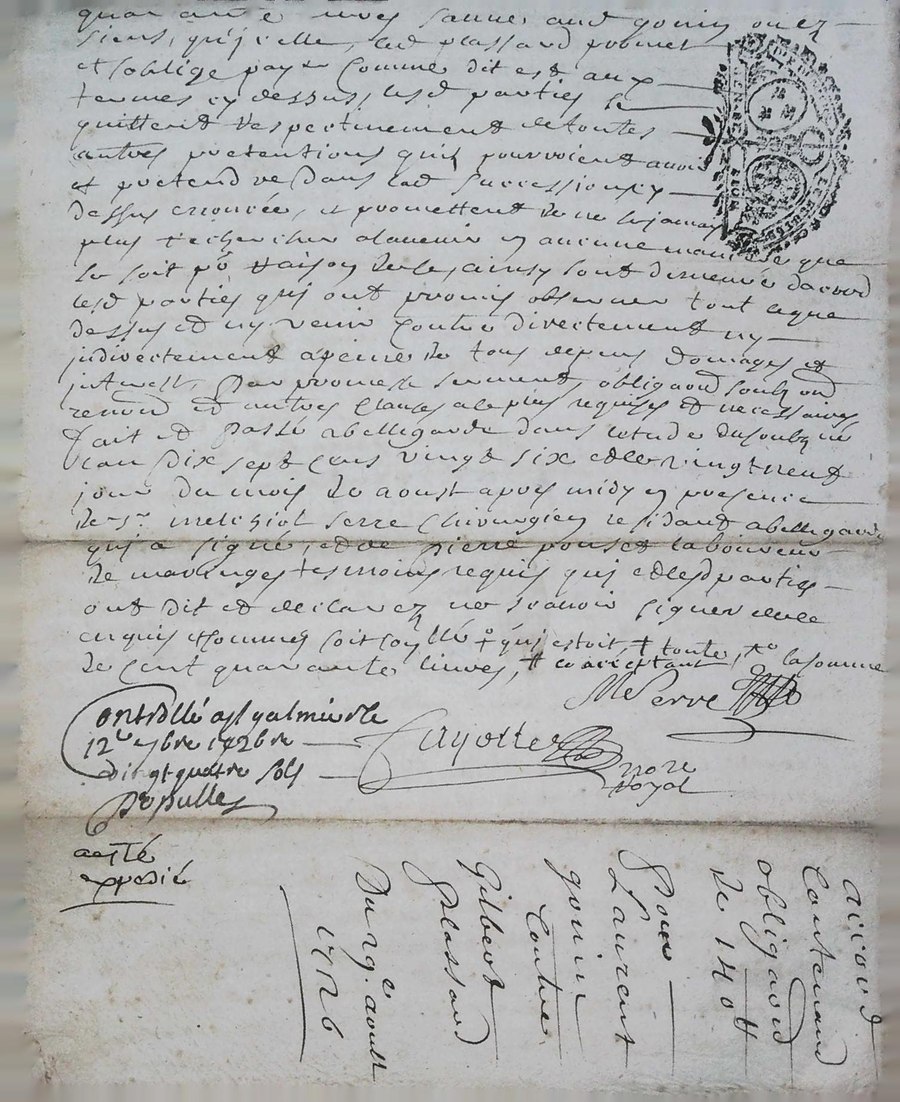 quarante livres sauve aud gonin ou ez
siens, qu'icelle, led plassard promet
et soblige payer Comme dit est aux
termes cy dessus, lesd parties se
quittent respectivement de toutes
autres pretentions quils pourroient avoir
et pretendre dans lad succession cy
dessus enoncée, et promettent de ne se jamais
plus rechercher alavenir en aucune maniere que
ce soit pr Raison de ce, ainsy sont demeuré dacord
lesd parties qui ont promis observer tout ceque
dessus et ny venir Contre directement ny
indirectement apeine de tous depens domages et
interest, Par promesse serment, obligaon soubz on
renon et autres Clauses ace plus requises et necessaires
fait et Passé abellegarde dans letude dusoubzné
Lan Dix sept Cens vingt six et le vingt neuf
jour Du mois de aoust apres midy en presence
de sr melchiol serre Chirurgien residant abellegarde
qui a signé, et de pierre ponset laboureur
de maringes tesmoins requis qui et lesd parties
ont dit et declarez ne scavoir signer de ce
enquis et sommés soit scyllé qui estoit, toute, la somme
de Cent quarante livres, ce acceptant
M Serre
Controllé a st galmier le
12e 7bre 1726
vingt quatre sols
Cuyotte
nore
Royal
a esté
expedié
accord
Contenant
obligaon
de 140 ₶
Pour
Laurent
gonin
Contre
Gilbert
Plassard
Du 29e aoust
1726